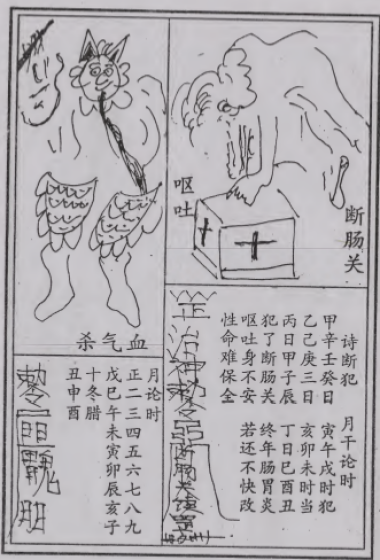 断肠关
呕吐
诗断犯 月干论时
甲辛壬癸日 寅午戌时犯
乙己庚三日 亥卯未时当
丙日甲子辰 丁日巳酉丑
犯了断肠关 终年肠胃炎
呕吐身不安 若还不快改
性命难保全
血气杀
月论时
正二三四五六七八九
戊巳午未寅卯辰亥子
十冬腊
丑申酉